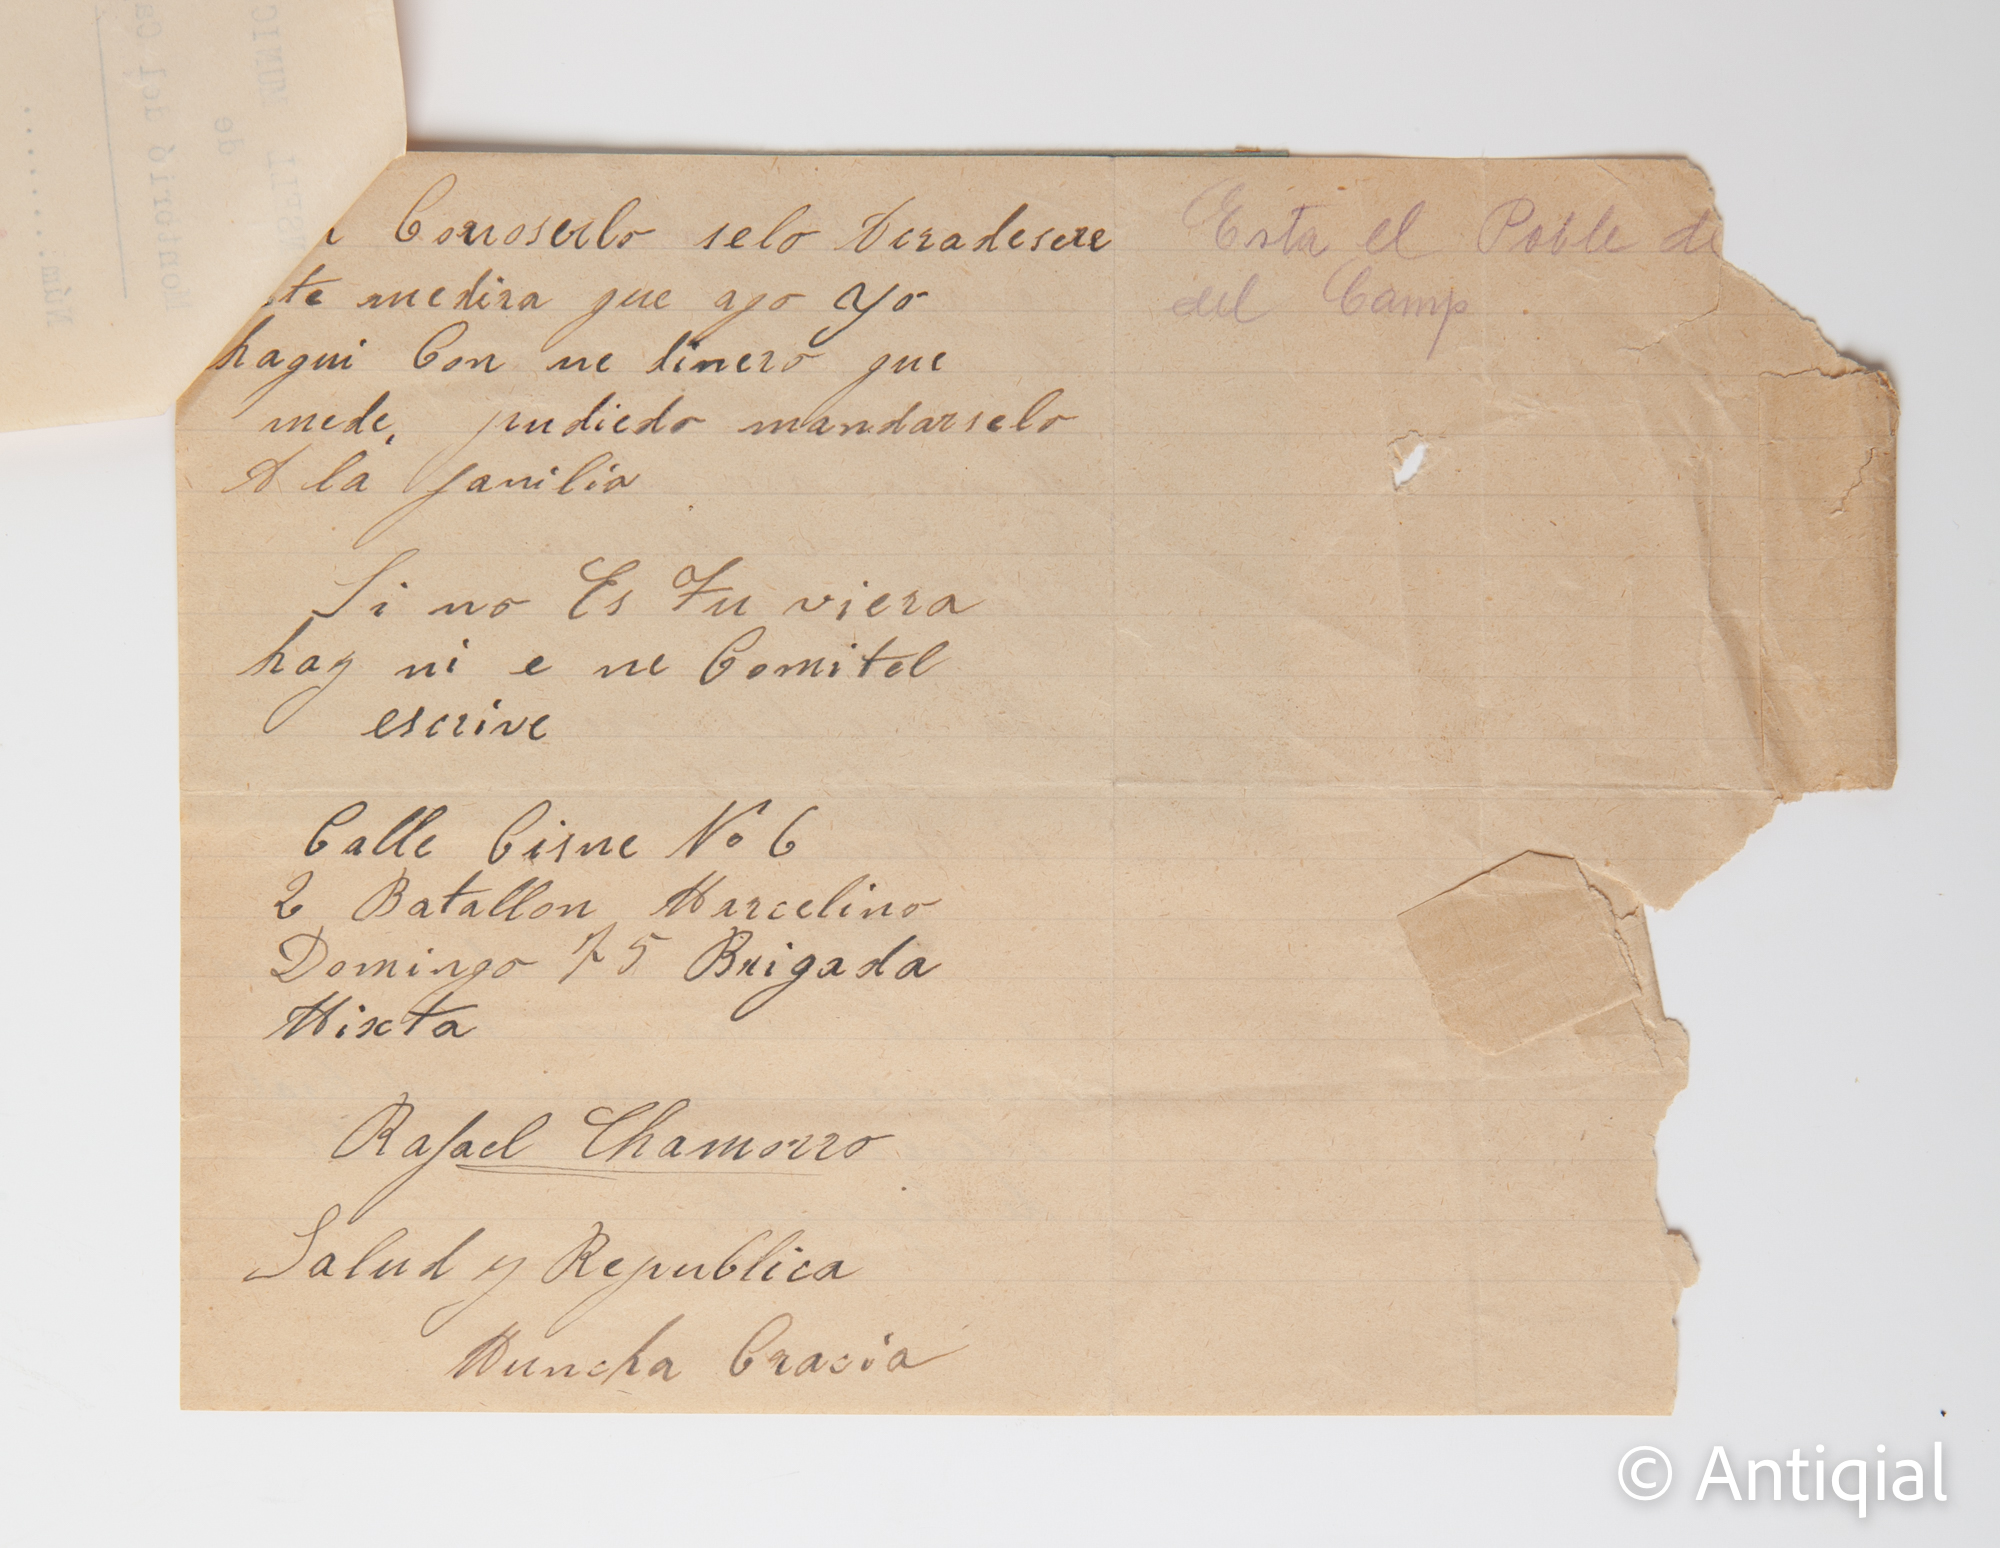 Conoserlo selo Acradesere
te medira que ago yo
haqui Con ne dinero que
mede, pudiedo mandarselo
A la familia
Si no Es Tu viera
hay ni e ne Comitel
escrive
Calle Cisne No 6
2 Batallon Marcelino
Domingo 75 Brigada
Mixta
Rafael Chamorro
Salud y Republica
Muncha Cracia
Esta el Poble de
del Camp
Núm:........
Montbrió del Ca
de
MUNIC
© Antiqial